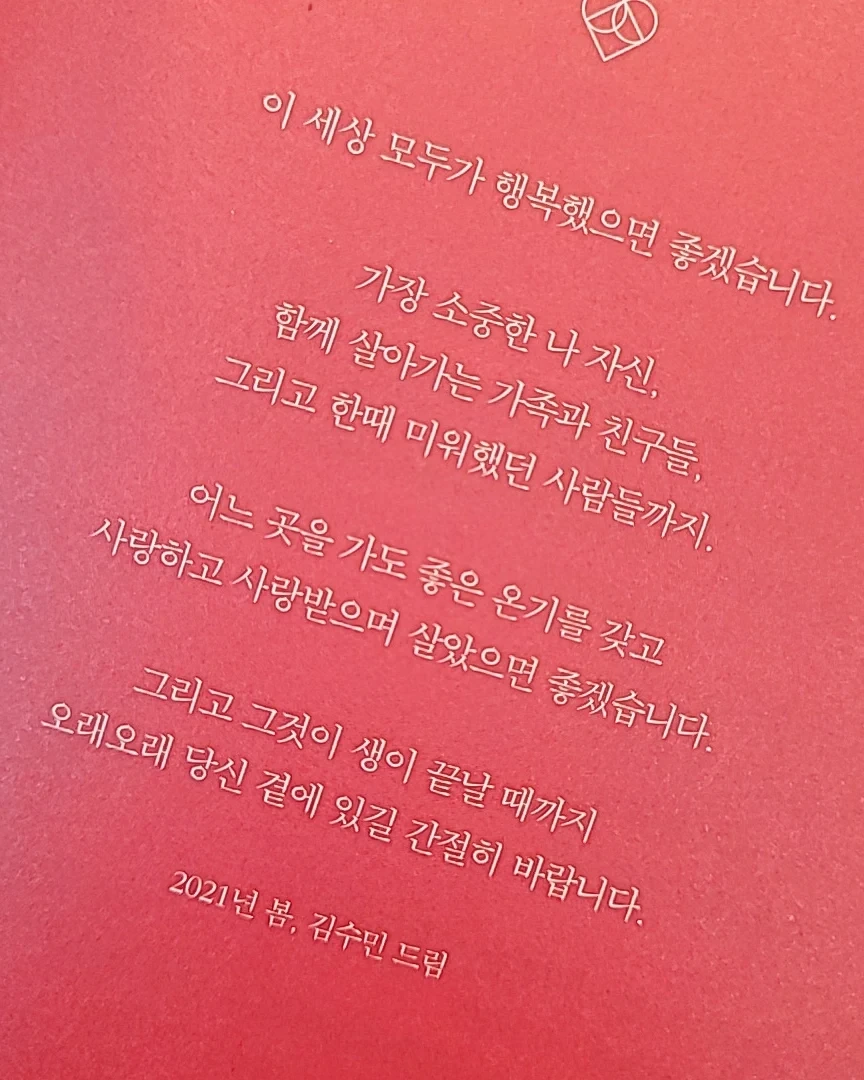 이 세상 모두가 행복했으면 좋겠습니다.
가장 소중한 나 자신,
함께 살아가는 가족과 친구들,
그리고 한때 미워했던 사람들까지.
어느 곳을 가도 좋은 온기를 갖고
사랑하고 사랑받으며 살았으면 좋겠습니다.
그리고 그것이 생이 끝날 때까지
오래오래 당신 곁에 있길 간절히 바랍니다.
2021년 봄, 김수민 드림